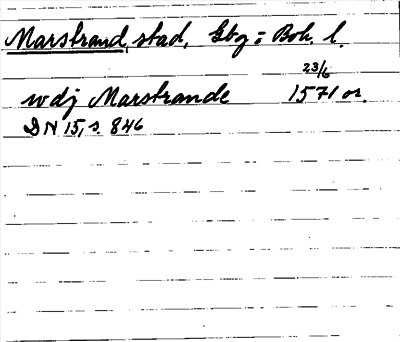 Marstrand, stad, Gbg = Boh. l.
23/6
wdj Marstrande 1571 or.
DN 15, s. 846